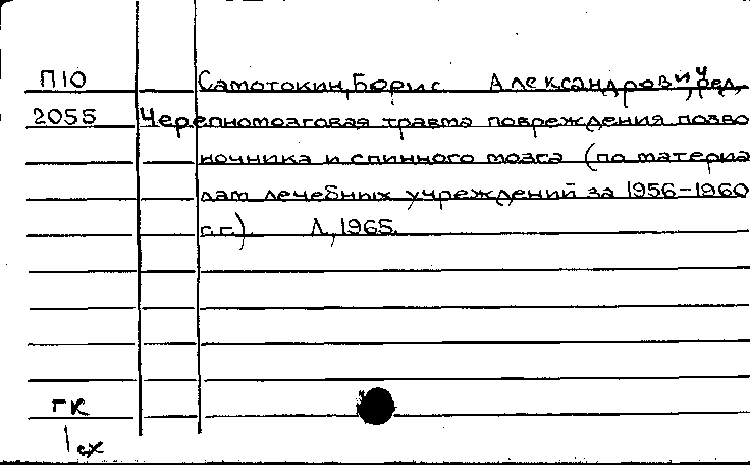 П10 Самотокин, Борис Александрович, ред.
2055 Черепномозговая травма повреждения позво
ночника и спинного мозга (по материа
лам лечебных учреждений за 1956-1960
г.г.) Л, 1965.
ГК
1 ех